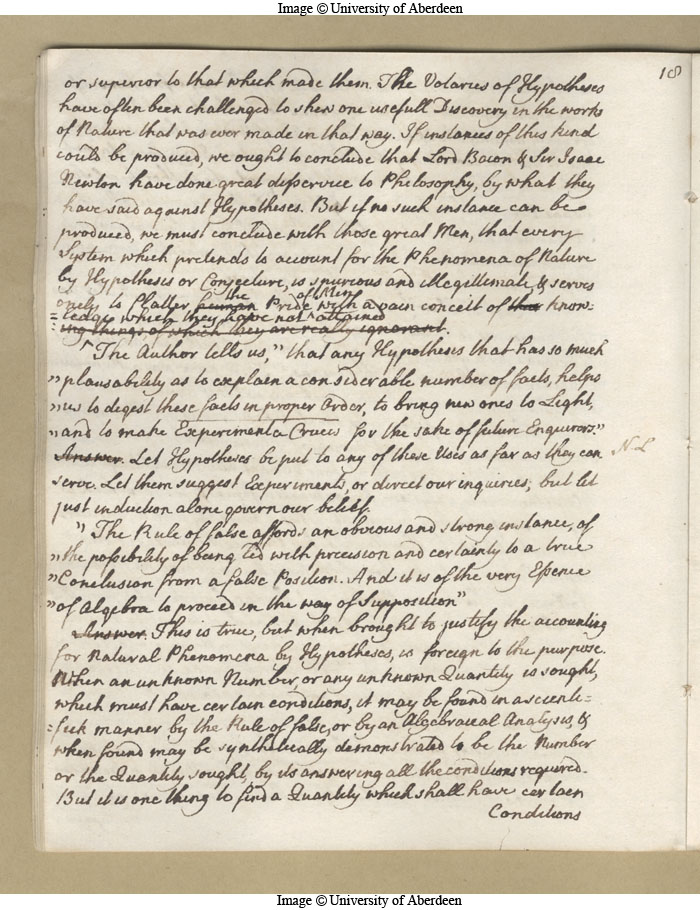 Image © University of Aberdeen
18
or superior to that which made them. The Votaries of Hypotheses
have often been challenged to shew one usefull Discovery in the works
of Nature that was ever made in that way. If instances of this kind
could be produced, we ought to conclude that Lord Bacon & Sir Isaac
Newton have done great disservice to Philosophy, by what they
have said against Hypotheses. But if no such instance can be
produced, we must conclude with those great Men, that every
System which pretends to account for the Phenomena of Nature
by Hypothesis or Conjecture, is spurious and illegitimate, & serves
the of Men
onely to flatter human Pride with a vain conceit of their know-
-ledge which they have not attained
-ing things of which they are really ignorant.
"The Author tells us," that any Hypothesis that has so much
"plausability as to explain a considerable number of facts, helps
"us to degest these facts in proper Order, to bring new ones to Light,
"and to make Experimenta Crucis for the sake of future Enquirors."
Answer. Let Hypotheses be put to any of these Uses as far as they can N.L
serve. Let them suggest Experiments, or direct our inquiries; but let
just induction alone govern our belief.
"The Rule of false affords an obvious and strong instance, of
"the possibility of being led with precision and certainty to a true
"Conclusion from a false Position. And it is of the very Essence
"of Algebra to proceed in the way of Supposition"
Answer. This is true, but when brought to justify the accounting
for Natural Phenomena by Hypotheses, is foreign to the purpose.
When an unknown Number, or any unknown Quantity is sought,
which must have certain conditions, it may be found in a scienti=
=fick manner by the Rule of false, or by an Algebraical Analysis, &
when found may be synthetically demonstrated to be the Number
or the Quantity sought, by its answering all the conditions required.
But it is one thing to find a Quantity which shall have certain
Conditions
Image © University of Aberdeen